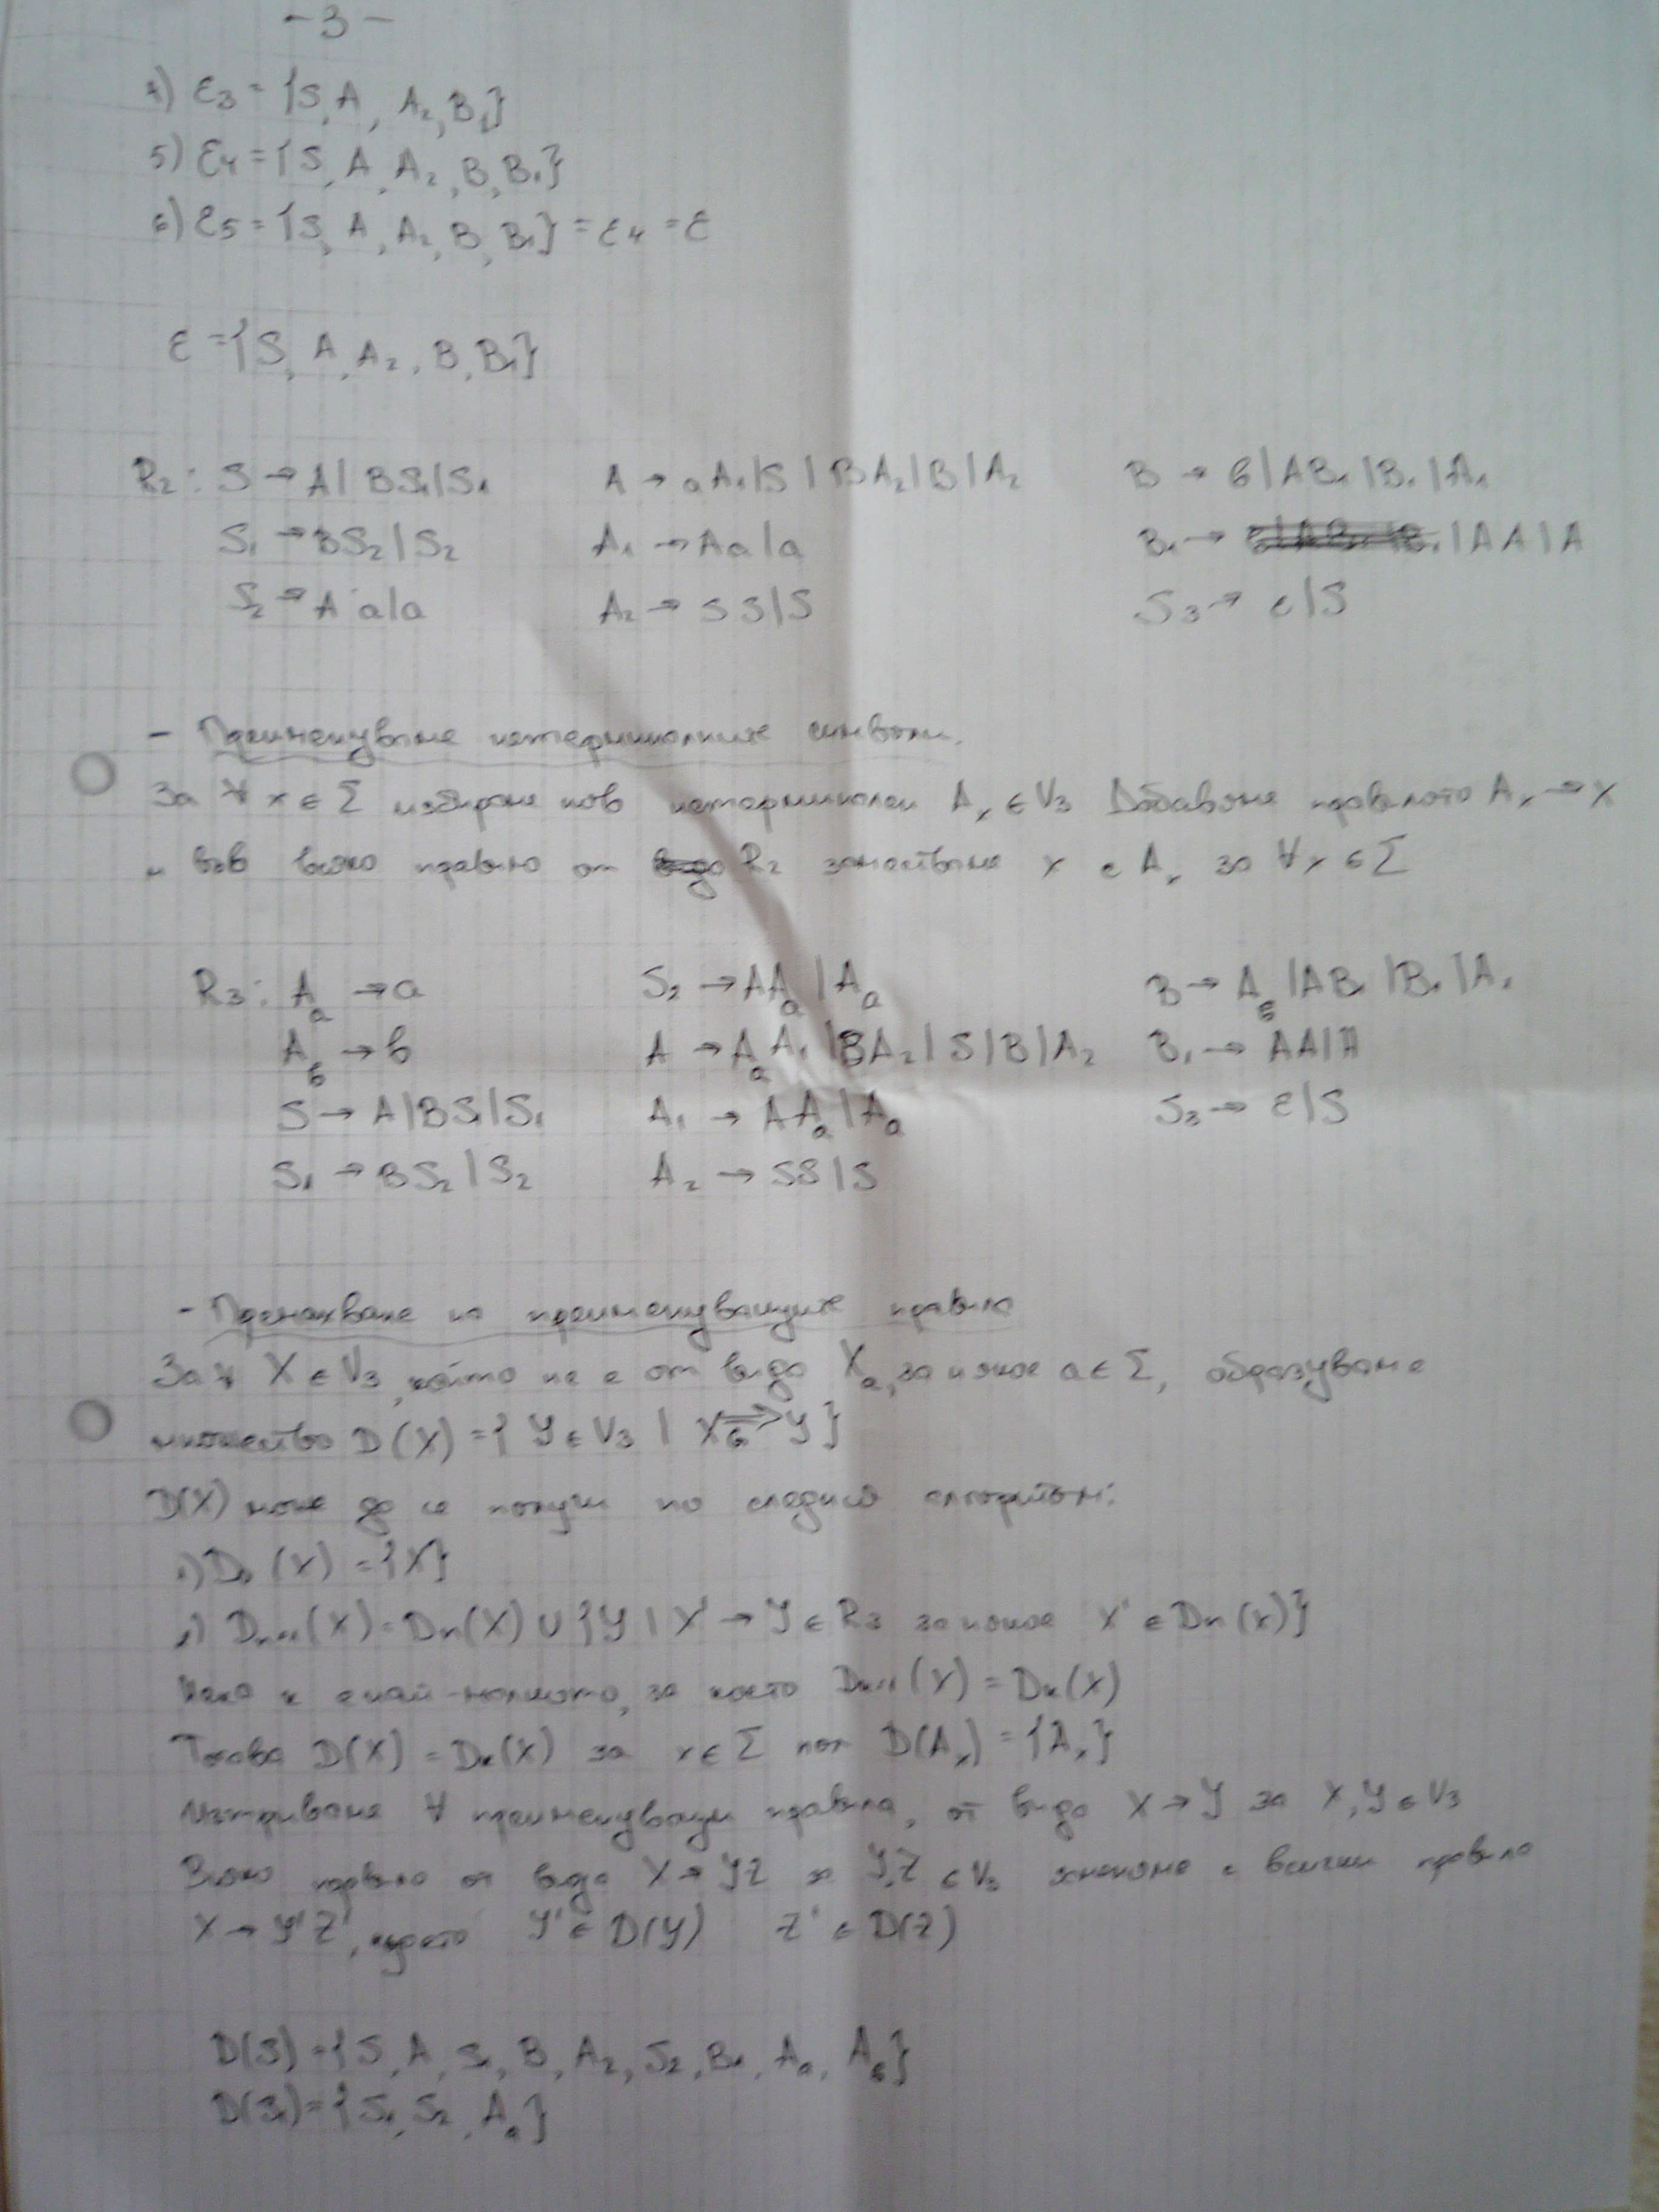 - 3 -
4) ε₃ = {S, A, A₂, B₁}
5) ε₄ = {S, A, A₂, B, B₁}
6) ε₅ = {S, A, A₂, B, B₁} = ε₄ = ε
ε = {S, A, A₂, B, B₁}
R₂: S → A | BS₁ | S₁ A → aA₁ | S | BA₂ | B | A₂ B → б | AB₁ | B₁ | A₁
S₁ → BS₂ | S₂ A₁ → Aa | a B₁ → | AA | A
S₂ → Aa | a A₂ → SS | S S₃ → ε | S
- Преименуване нетерминалните символи.
За ∀ x ∈ Σ избираме нов нетерминален Aₓ ∈ V₃ Добавяме правилото Aₓ → x
и във всяко правило от R₂ заместваме x с Aₓ за ∀x ∈ Σ
R₃: Aₐ → a S₂ → AAₐ | Aₐ B → A_б | AB₁ | B₁ | A₁
A_б → b A → AₐA₁ | BA₂ | S | B | A₂ B₁ → AA | A
S → A | BS₁ | S₁ A₁ → AAₐ | Aₐ S₃ → ε | S
S₁ → BS₂ | S₂ A₂ → SS | S
- Премахване на преименуващите правила
За ∀ X ∈ V₃, който не е от вида Xₐ, за някое a ∈ Σ, образуваме
множество D(X) = { Y ∈ V₃ | X ⇒_G Y }
D(X) може да се получи по следния алгоритъм:
D₀(X) = {X}
Dₙ₊₁(X) = Dₙ(X) ∪ {Y | X' → Y ∈ R₃ за някое X' ∈ Dₙ(X)}
Нека k е най-малкото, за което Dₖ₊₁(X) = Dₖ(X)
Тогава D(X) = Dₖ(X) за x ∈ Σ D(Aₓ) = {Aₓ}
Изтриваме ∀ преименуващи правила, от вида X → Y за X, Y ∈ V₃
Всяко правило от вида X → YZ Y, Z ∈ V₃ заменяме с всички правила
X → Y'Z', където Y' ∈ D(Y) Z' ∈ D(Z)
D(S) = {S, A, S₁, B, A₂, S₂, B₁, Aₐ, A_б}
D(S₁) = {S₁, S₂, Aₐ}